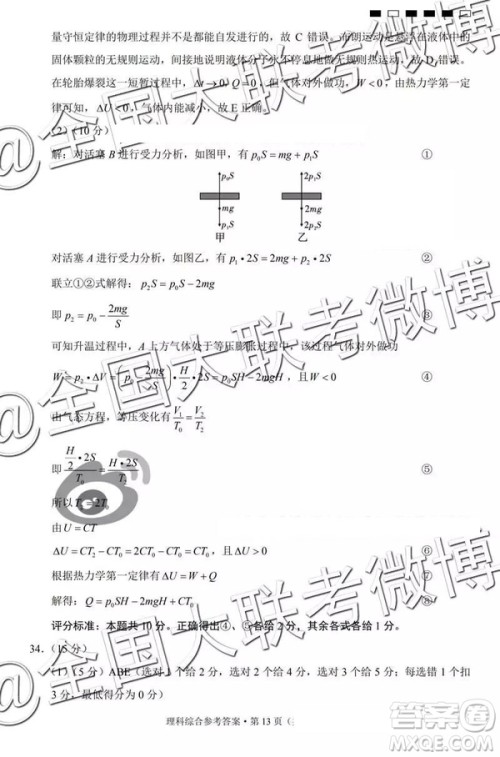 量守恒定律的物理过程并不是都能自发进行的，故 C 错误。布朗运动是悬浮在液体中的
固体颗粒的无规则运动，间接地说明液体分子永不停息地做无规则热运动，故 D 错误。
在轮胎爆裂这一短暂过程中，Δt→0，Q=0，但气体对外做功，W<0，由热力学第一定
律可知，ΔU<0，气体内能减小，故 E 正确。
（2）（10 分）
解：对活塞 B 进行受力分析，如图甲，有 p₀S = mg + p₁S ①
p₀S p₁S
mg 2mg
p₁S 2p₂S
甲 乙
对活塞 A 进行受力分析，如图乙，有 p₁•2S = 2mg + p₂•2S ②
联立①②式解得：p₂S = p₀S − 2mg
即 p₂ = p₀ − 2mg/S
可知升温过程中，A 上方气体处于等压膨胀过程中，该过程气体对外做功
W = p₂•ΔV = (p₀ − 2mg/S)•H/2•2S = p₀SH − 2mgH，且 W<0 ④
由气态方程，等压变化有 V₁/T₀ = V₂/T₂
即 (H/2•2S)/T₀ = (H•2S)/T₂ ⑤
所以 T₂ = 2T₀
由 U = CT
ΔU = CT₂ − CT₀ = 2CT₀ − CT₀ = CT₀，且 ΔU>0 ⑥
根据热力学第一定律有 ΔU = W + Q
解得：Q = p₀SH − 2mgH + CT₀
评分标准：本题共 10 分。正确得出④、⑤各给 2 分，其余各式各给 1 分。
34．（15 分）
（1）（5 分）ABE（选对 1 个给 2 分，选对 2 个给 4 分，选对 3 个给 5 分；每选错 1 个扣
3 分，最低得分为 0 分）
理科综合参考答案·第 13 页（
@全国大联考微博
@全国大联考微博
@全国大联考微博
答案圈
MXQE.COM